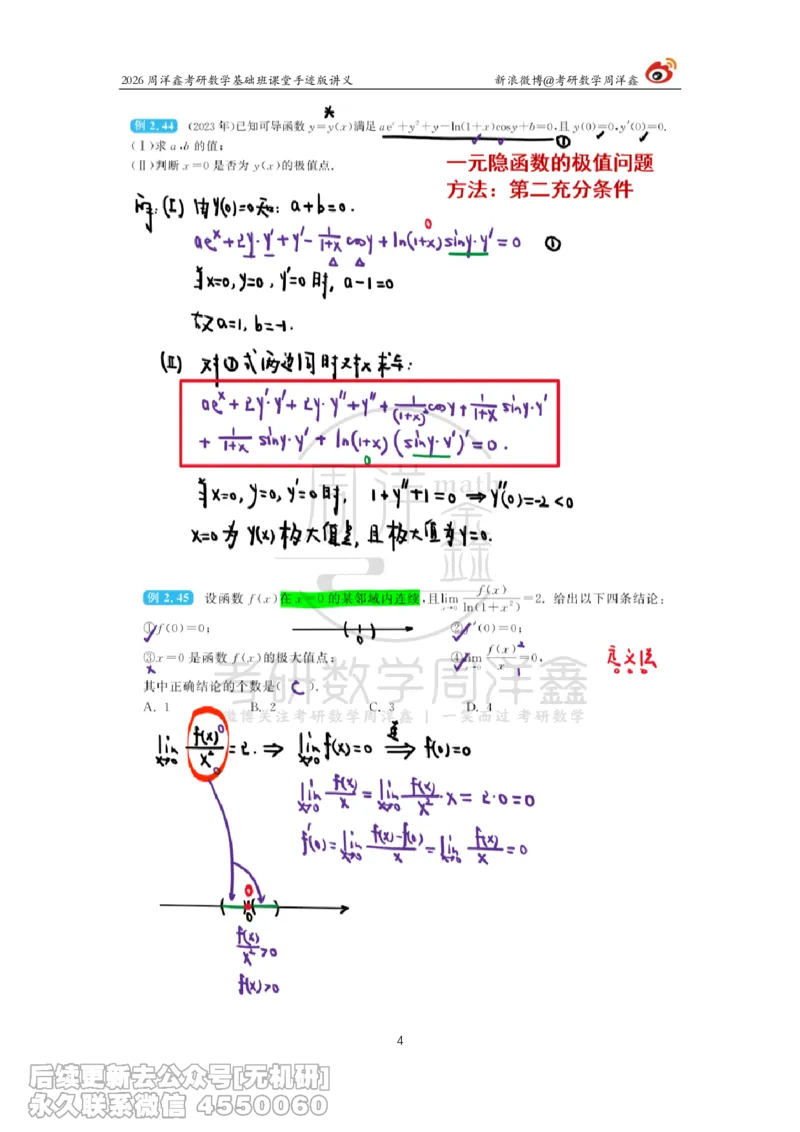 2026 周洋鑫考研数学基础班课堂手迹版讲义 新浪微博@考研数学周洋鑫
例 2.44 (2023 年)已知可导函数 y=y(x)满足 aeˣ+y²+y−ln(1+x)cosy+b=0,且 y(0)=0,y′(0)=0.
(Ⅰ)求 a,b 的值;
(Ⅱ)判断 x=0 是否为 y(x)的极值点.
一元隐函数的极值问题
方法：第二充分条件
解:(Ⅰ) 由y(0)=0知: a+b=0.
aeˣ+2y·y′+y′−1/(1+x) cosy+ln(1+x)siny·y′=0 ①
当x=0, y=0, y′=0时, a−1=0
故a=1, b=−1.
(Ⅱ) 对①式两边同时对x求导:
aeˣ+2y′·y′+2y·y″+y″+1/(1+x)² cosy+1/(1+x) siny·y′
+1/(1+x) siny·y′+ln(1+x)(siny·y′)′=0.
0
当x=0, y=0, y′=0时, 1+y″+1=0 ⇒ y″(0)=−2<0
x=0为y(x)极大值点, 且极大值为y=0.
例 2.45 设函数 f(x)在 x=0 的某邻域内连续,且lim x→0 f(x)/ln(1+x²)=2. 给出以下四条结论:
①f(0)=0; ②f′(0)=0;
③x=0 是函数 f(x)的极大值点; ④lim x→0 f(x)/x=0,
定义法
其中正确结论的个数是( C ).
A. 1 B. 2 C. 3 D. 4
考研数学周洋鑫
微博关注考研数学周洋鑫 | 一笑而过 考研数学
lim x→0 f(x)/x²=2. ⇒ lim x→0 f(x)=0 连⇒ f(0)=0
lim x→0 f(x)/x=lim x→0 f(x)/x²·x=2·0=0
f′(0)=lim x→0 (f(x)−f(0))/x=lim x→0 f(x)/x=0
0
0
f(x)/x²>0
f(x)>0
4
后续更新去公众号[无机研]
永久联系微信 4550060